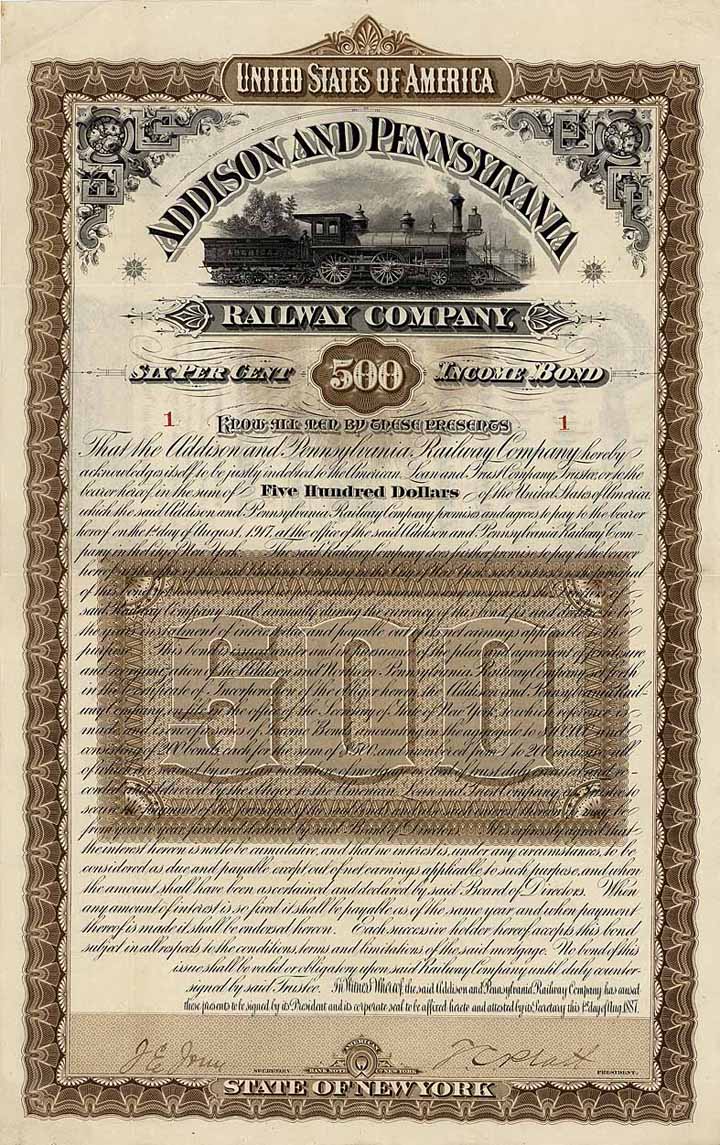 UNITED STATES OF AMERICA
ADDISON AND PENNSYLVANIA
RAILWAY COMPANY.
SIX PER CENT 500 INCOME BOND
1 KNOW ALL MEN BY THESE PRESENTS 1
That the Addison and Pennsylvania Railway Company hereby
acknowledges itself to be justly indebted to the American Loan and Trust Company, Trustee, or to the
bearer hereof, in the sum of Five Hundred Dollars of the United States of America
which the said Addison and Pennsylvania Railway Company promises and agrees to pay to the bearer
hereof on the 1st day of August, 1917, at the office of the said Addison and Pennsylvania Railway Com-
pany in the City of New York. The said Railway Company does further promise to pay to the bearer
hereof
of this
said Railway Company shall annually during the currency of this bond fix and declare to be
the years instalment of interest due and payable out of its net earnings applicable to the
purpose. This bond is issued under and in pursuance of the plan and agreement of
and reorganization of the Addison and Northern Pennsylvania Railway Company set forth
in the Certificate of Incorporation of the obligor herein, the Addison and Pennsylvania Rail-
way Company, on file in the office of the Secretary of State of New York, to which reference is
made, and is one of a series of Income Bonds amounting in the aggregate to
consisting of 200 bonds each for the sum of $500, and numbered from 1 to 200 inclusive, all
of which are secured by a certain indenture of mortgage
and delivered by the obligor to the American Loan and Trust Company, as Trustee to
secure the payment of the principal of the said bonds and
from year to year fixed and declared by said Board of Directors. It is expressly agreed that
the interest hereon is not to be cumulative, and that no interest is, under any circumstances, to be
considered as due and payable except out of net earnings applicable to such purpose, and when
the amount shall have been ascertained and declared by said Board of Directors. When
any amount of interest is so fixed it shall be payable as of the same year and when payment
thereof is made it shall be endorsed hereon. Each successive holder hereof accepts this bond
subject in all respects to the conditions, terms and limitations of the said mortgage. No bond of this
issue shall be valid or obligatory upon said Railway Company until duly counter-
signed by said Trustee. In Witness Whereof, the said Addison and Pennsylvania Railway Company has caused
these presents to be signed by its President and its corporate seal to be affixed hereto and attested by its Secretary this 1st day of Aug. 1887.
500
SECRETARY. AMERICAN BANK NOTE CO. NEW YORK T C Platt PRESIDENT.
STATE OF NEW YORK